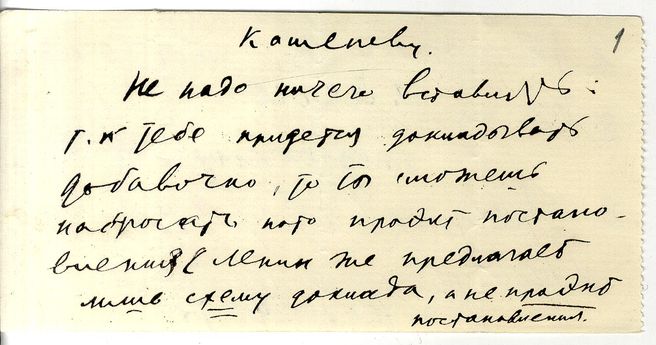 Каменеву. 1
Не надо ничего вставлять:
т.к тебе придется докладывать
добавочно, то ты сможешь
набросать проэкт постано-
вления (Ленин же предлагает
лишь схему доклада, а не проэкт
постановления.